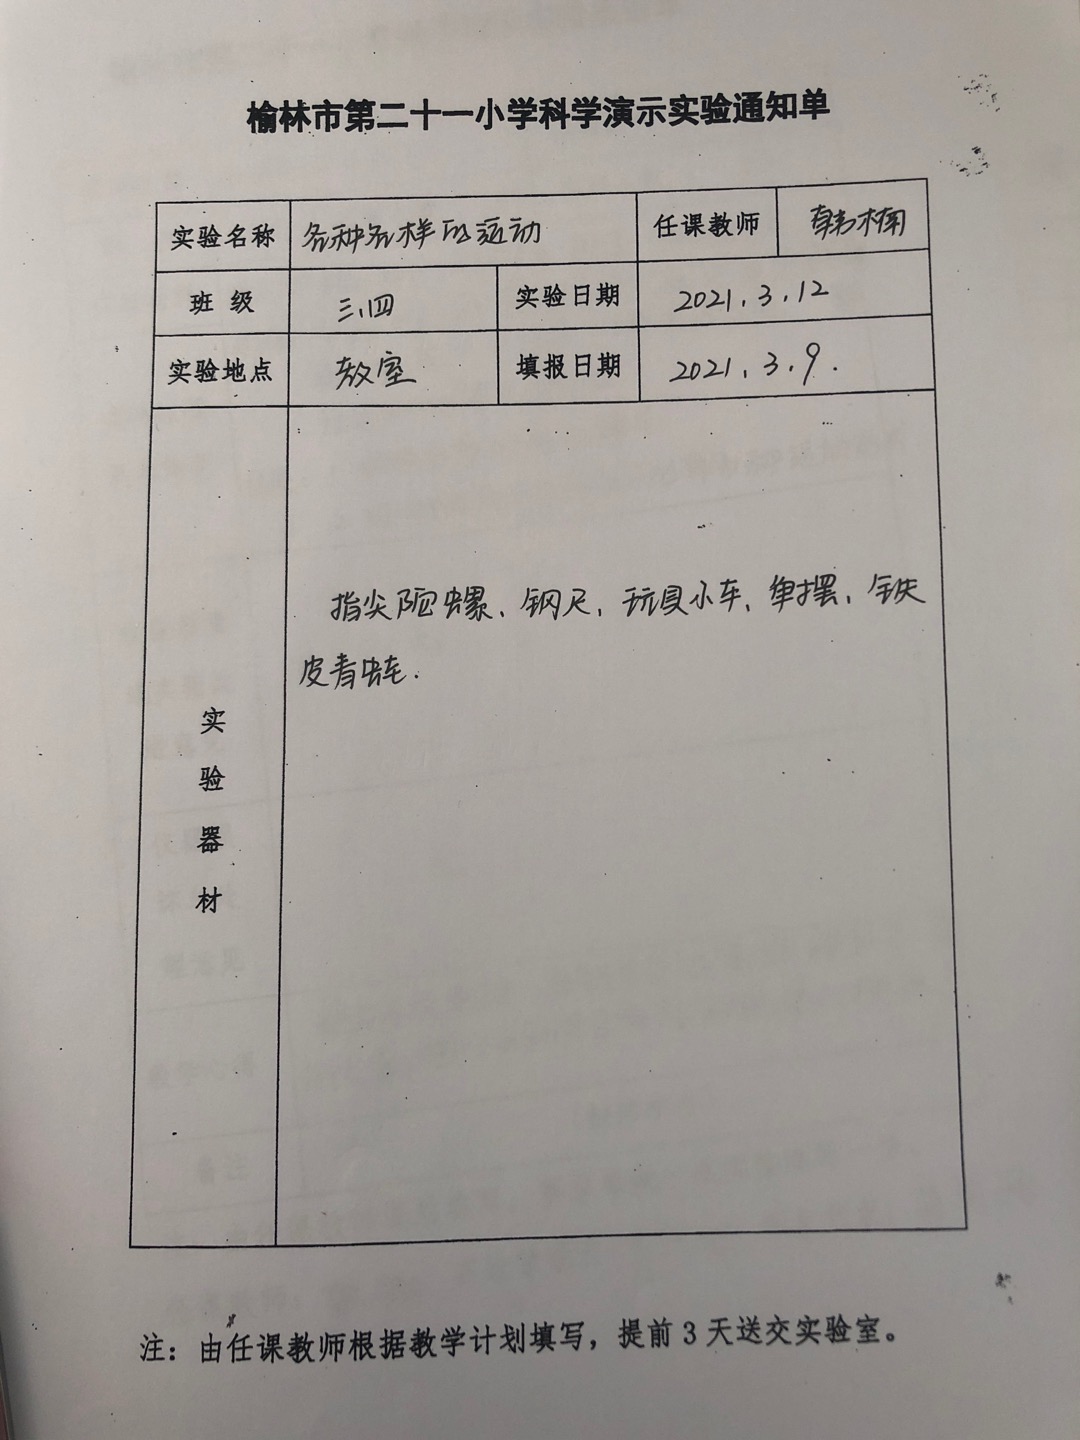 榆林市第二十一小学科学演示实验通知单
实验名称 各种各样的运动 任课教师 韩楠
班 级 三.四 实验日期 2021.3.12
实验地点 教室 填报日期 2021.3.9.
实验器材
指尖陀螺、钢尺、玩具小车、单摆、铁
皮青蛙.
注：由任课教师根据教学计划填写，提前 3 天送交实验室。